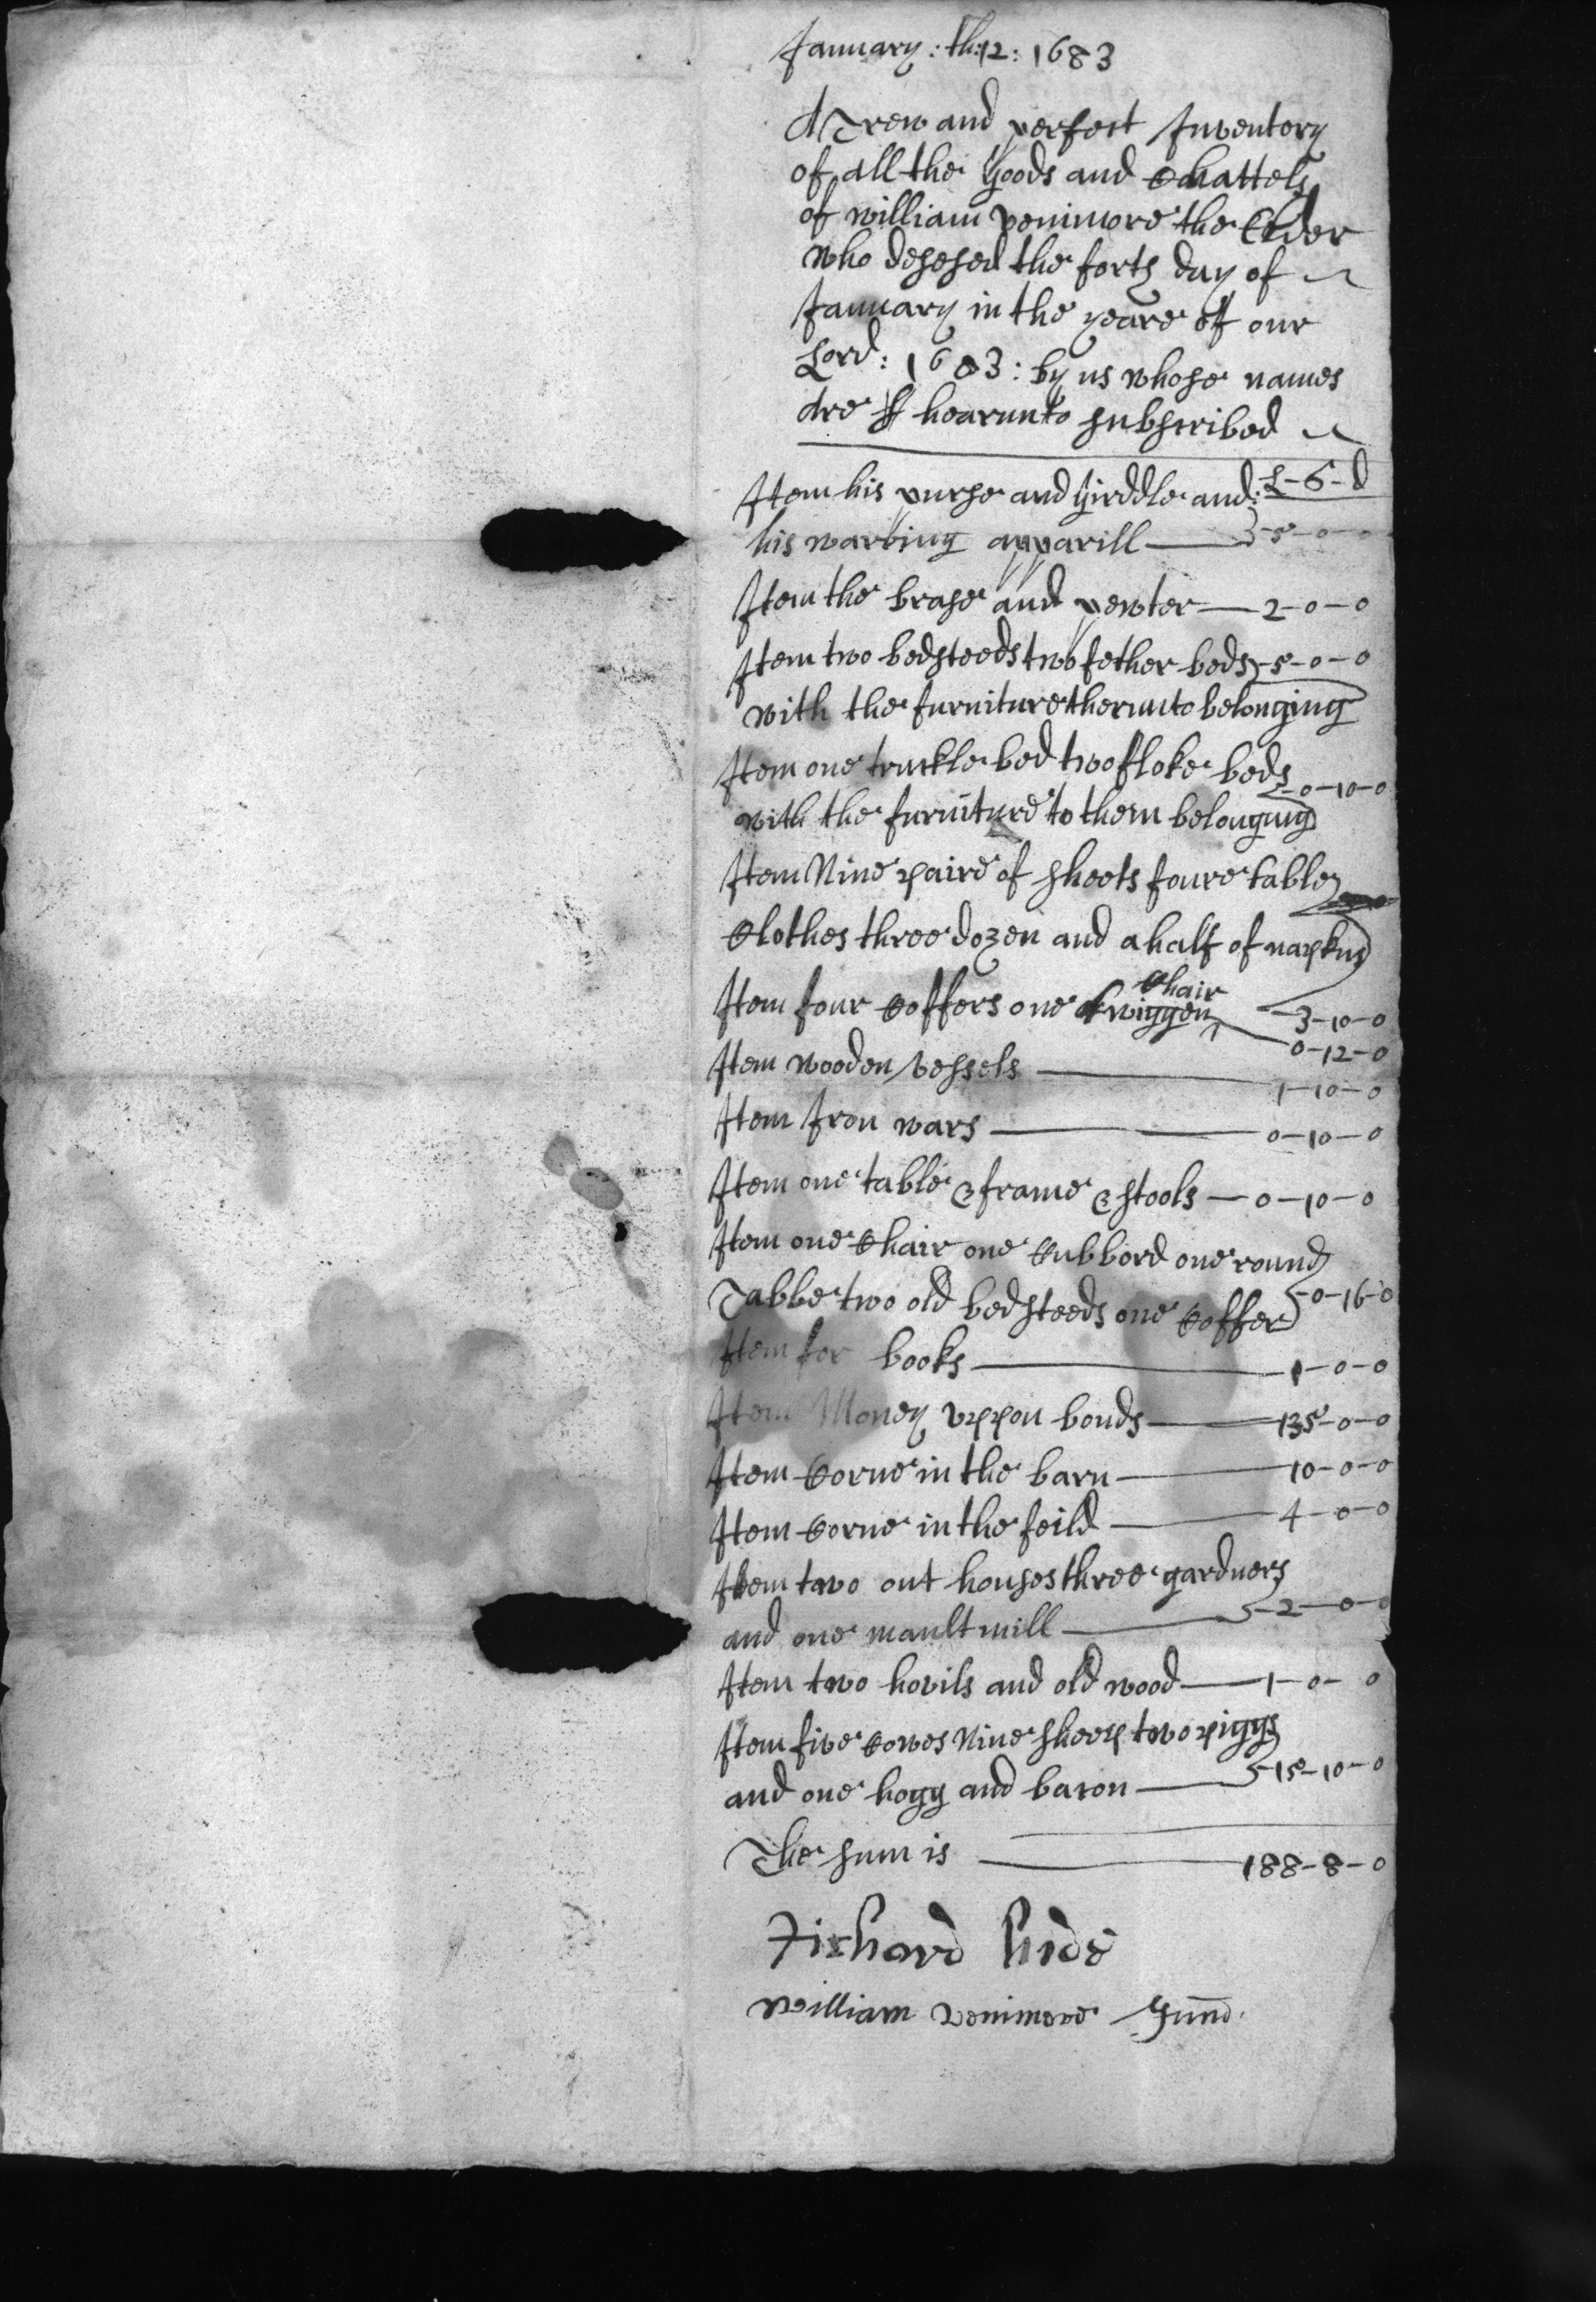 January : th:12 : 1683
A Trew and perfect Inventory
of all the goods and Chattels
of william penimore the Elder
who desesed the forth day of
January in the yeare of our
Lord : 1683 : by us whose names
are hearunto subscribed
Item his purse and girddle and : L - S - d
his waring apparill — 5 - 0 - 0
Item the brase and pewter — 2 - 0 - 0
Item two bedsteeds two fether beds - 5 - 0 - 0
with the furniture therunto belonging
Item one truckle bed two floke beds
with the furniture to them belonging - 0 - 10 - 0
Item Nine paire of sheets foure table
Clothes three dozen and a half of napkins
Item four Coffers one twiggen Chair 3 - 10 - 0
0 - 12 - 0
Item wooden vessels — 1 - 10 - 0
Item Iron wars — 0 - 10 - 0
Item one table & frame & stools — 0 - 10 - 0
Item one Chair one Cubbord one round
Tabbe two old bedsteeds one Coffer - 0 - 16 - 0
Item for books — 1 - 0 - 0
Item Money uppon bonds — 135 - 0 - 0
Item Corne in the barn — 10 - 0 - 0
Item Corne in the feild — 4 - 0 - 0
Item two out houses three gardners
and one mault mill — 2 - 0 - 0
Item two hovils and old wood — 1 - 0 - 0
Item five Cowes Nine sheep two piggs
and one hogg and bacon — 15 - 10 - 0
The sum is — 188 - 8 - 0
Richard hide
William penimore Junn.